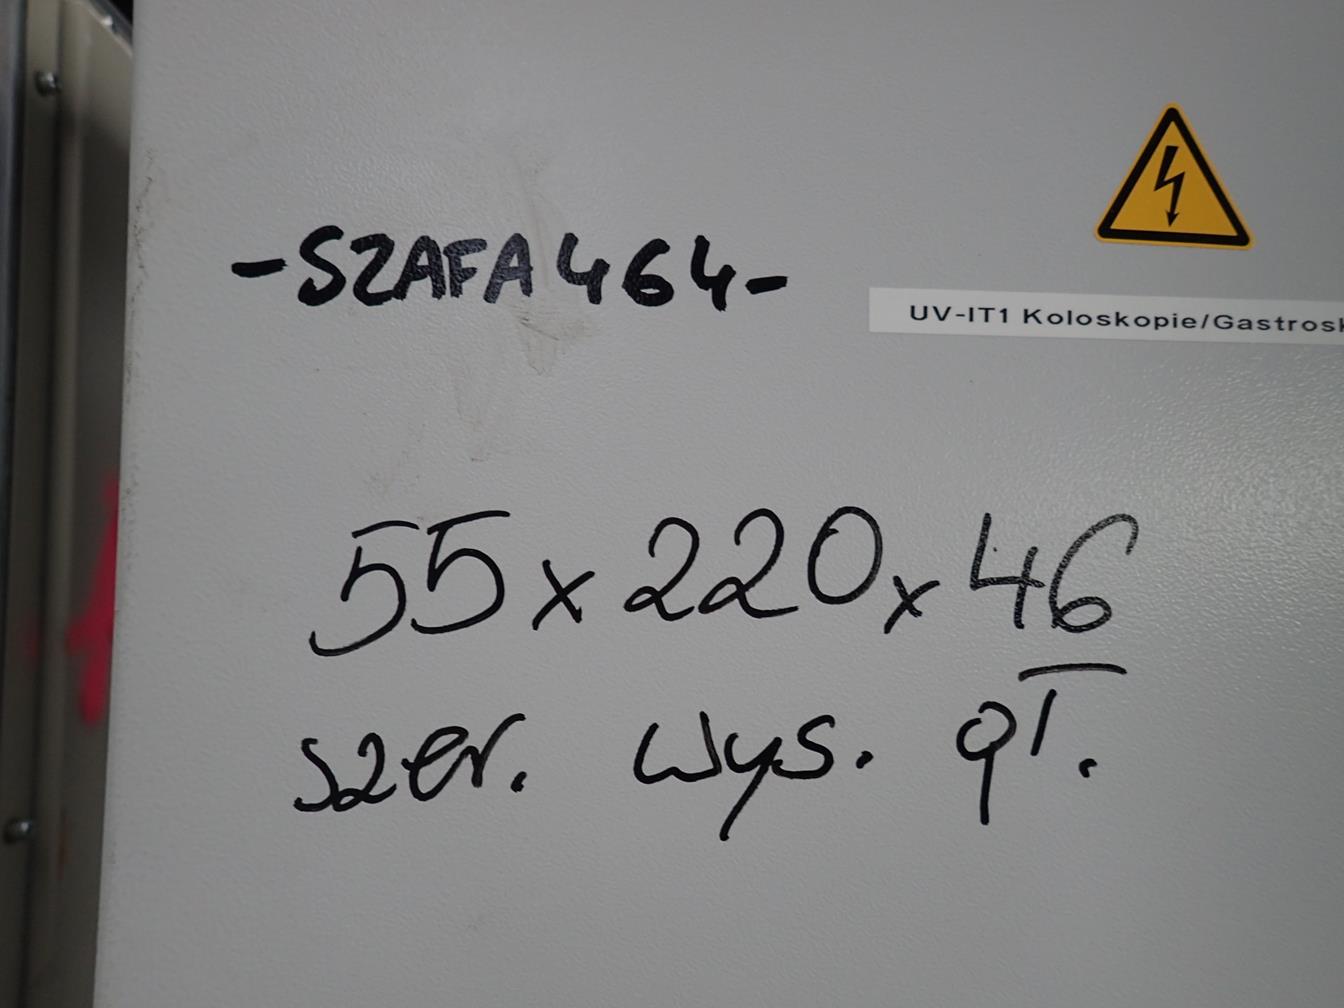 -SZAFA 464-
UV-IT1 Koloskopie/Gastrosk
55 x 220 x 46
szer. wys. gł.